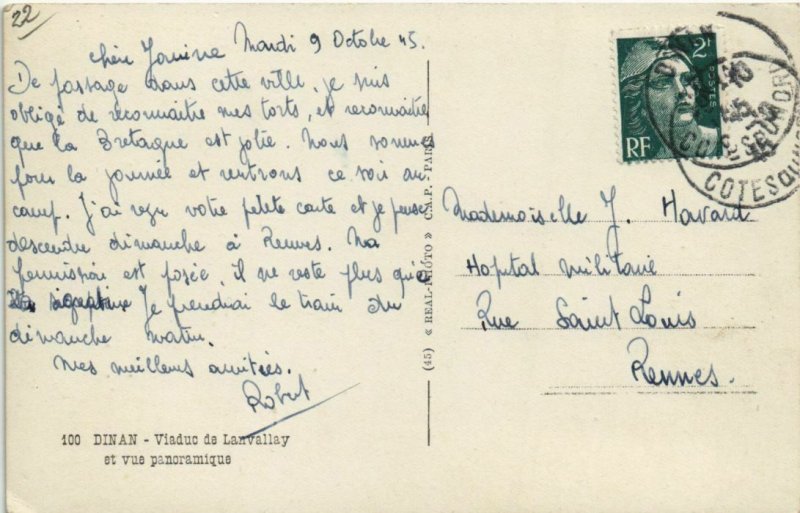 22
Chère Janine Mardi 9 Octobre 45.
De passage dans cette ville, je suis
obligé de reconnaitre mes torts, et reconnaitre
que la Bretagne est jolie. Nous sommes
pour la journée et rentrons ce soir au
camp. J'ai reçu votre petite carte et je pense
descendre dimanche à Rennes. Ma
permission est posée, il ne reste plus que
la signature Je prendrai le train du
dimanche matin.
Mes meilleurs amitiés.
Robert
100 DINAN - Viaduc de Lanvallay
et vue panoramique
(45) « REAL-PHOTO » C.A.P. - PARIS
2F
RF
COTES DU NORD
Mademoiselle J. Havard
Hopital militaire
Rue Saint Louis
Rennes.